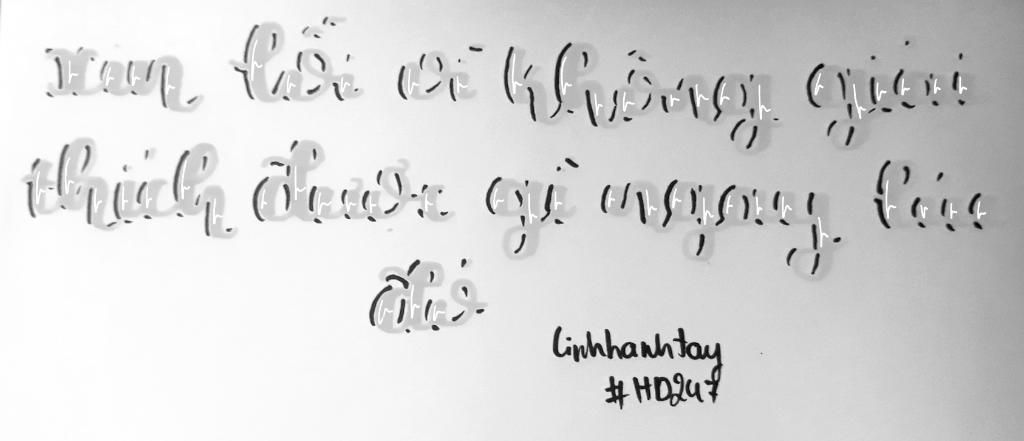 xin lỗi vì không giải
thích được gì ngay lúc
đó
linhhanhtay
#HD247